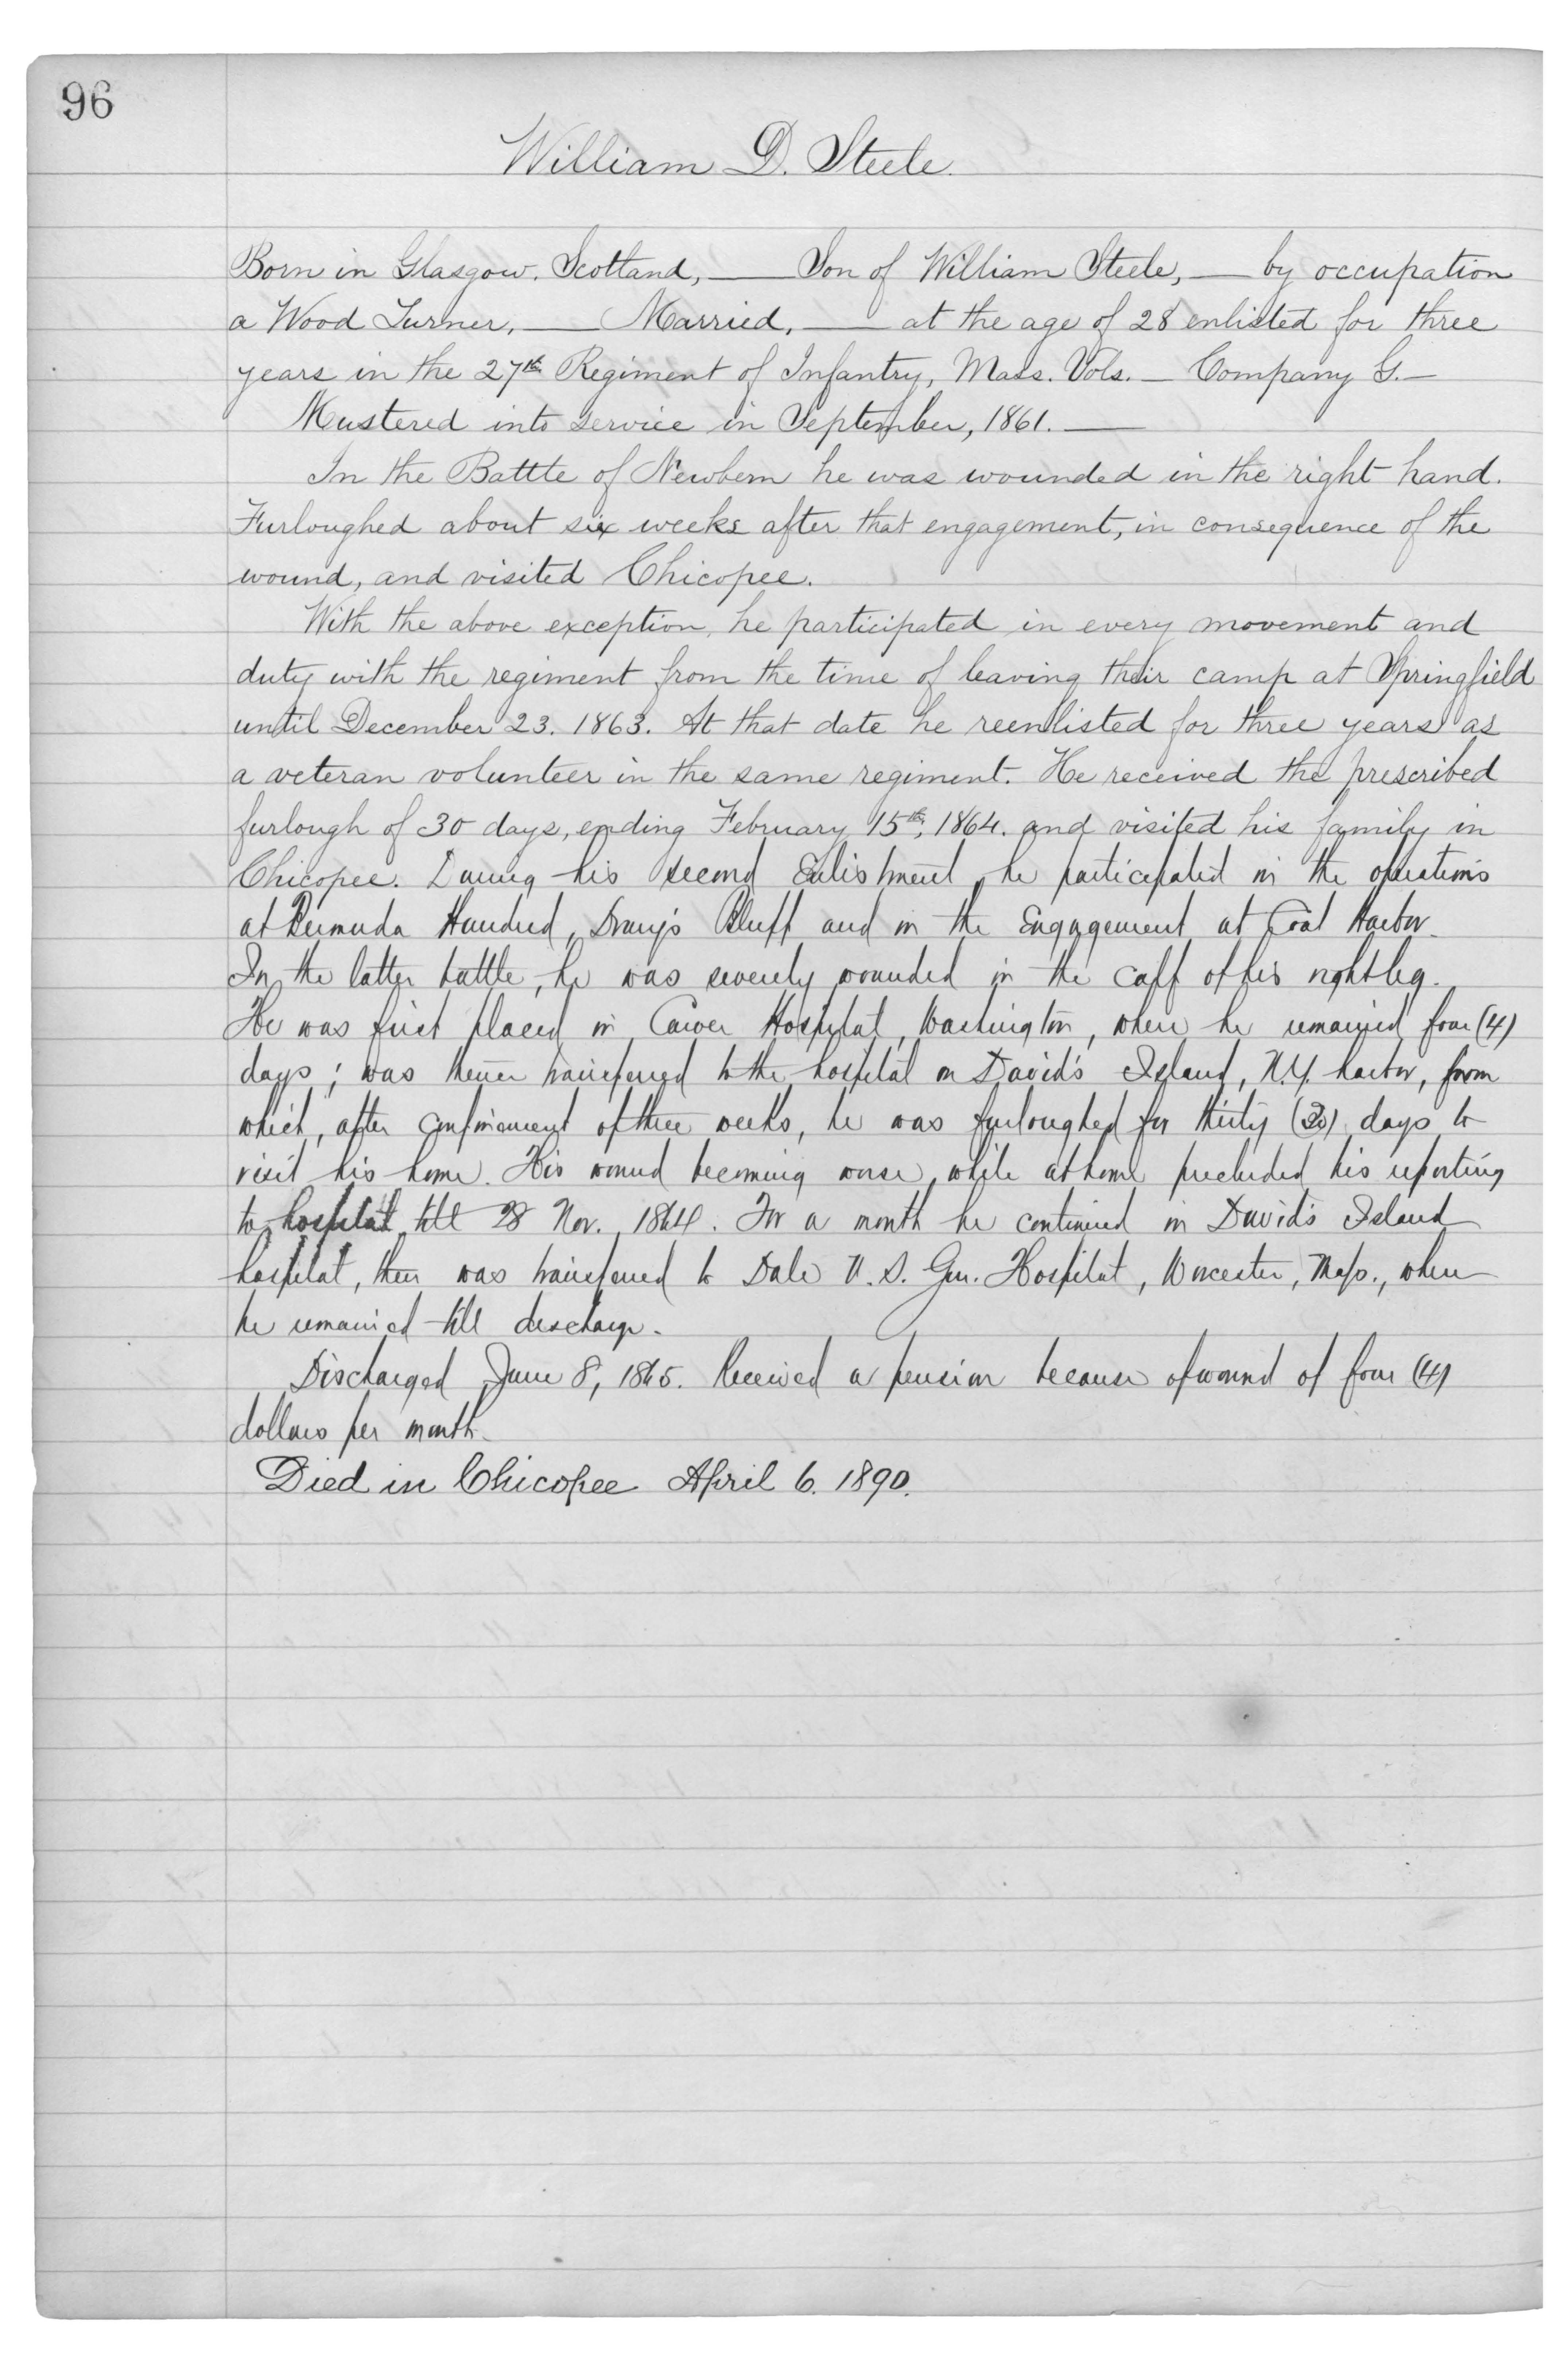 96
William D. Steele.
Born in Glasgow. Scotland, — Son of William Steele, — by occupation
a Wood Turner, — Married, — at the age of 28 enlisted for three
years in the 27th Regiment of Infantry, Mass. Vols. — Company G. —
Mustered into service in September, 1861. —
In the Battle of Newbern he was wounded in the right hand.
Furloughed about six weeks after that engagement, in consequence of the
wound, and visited Chicopee.
With the above exception, he participated in every movement and
duty with the regiment from the time of leaving their camp at Springfield
until December 23. 1863. At that date he reenlisted for three years as
a veteran volunteer in the same regiment. He received the prescribed
furlough of 30 days, ending February 15th, 1864. and visited his family in
Chicopee. During his second Enlistment, he participated in the operations
at Bermuda Hundred, Drury's Bluff and in the Engagement at Coal Harbor.
In the latter battle, he was severely wounded in the calf of his right leg.
He was first placed in Carver Hospital, Washington, where he remained four (4)
days; was thence transferred to the hospital on David's Island, N.Y. harbor, from
which, after confinement of three weeks, he was furloughed for thirty (30) days to
visit his home. His wound becoming worse, while at home precluded his reporting
to hospital till 28 Nov. 1864. For a month he continued in David's Island
hospital, then was transferred to Dale U.S. Gen. Hospital, Worcester, Mass., where
he remained till discharge.
Discharged June 8, 1865. Received a pension because of wound of four (4)
dollars per month.
Died in Chicopee April 6. 1890.